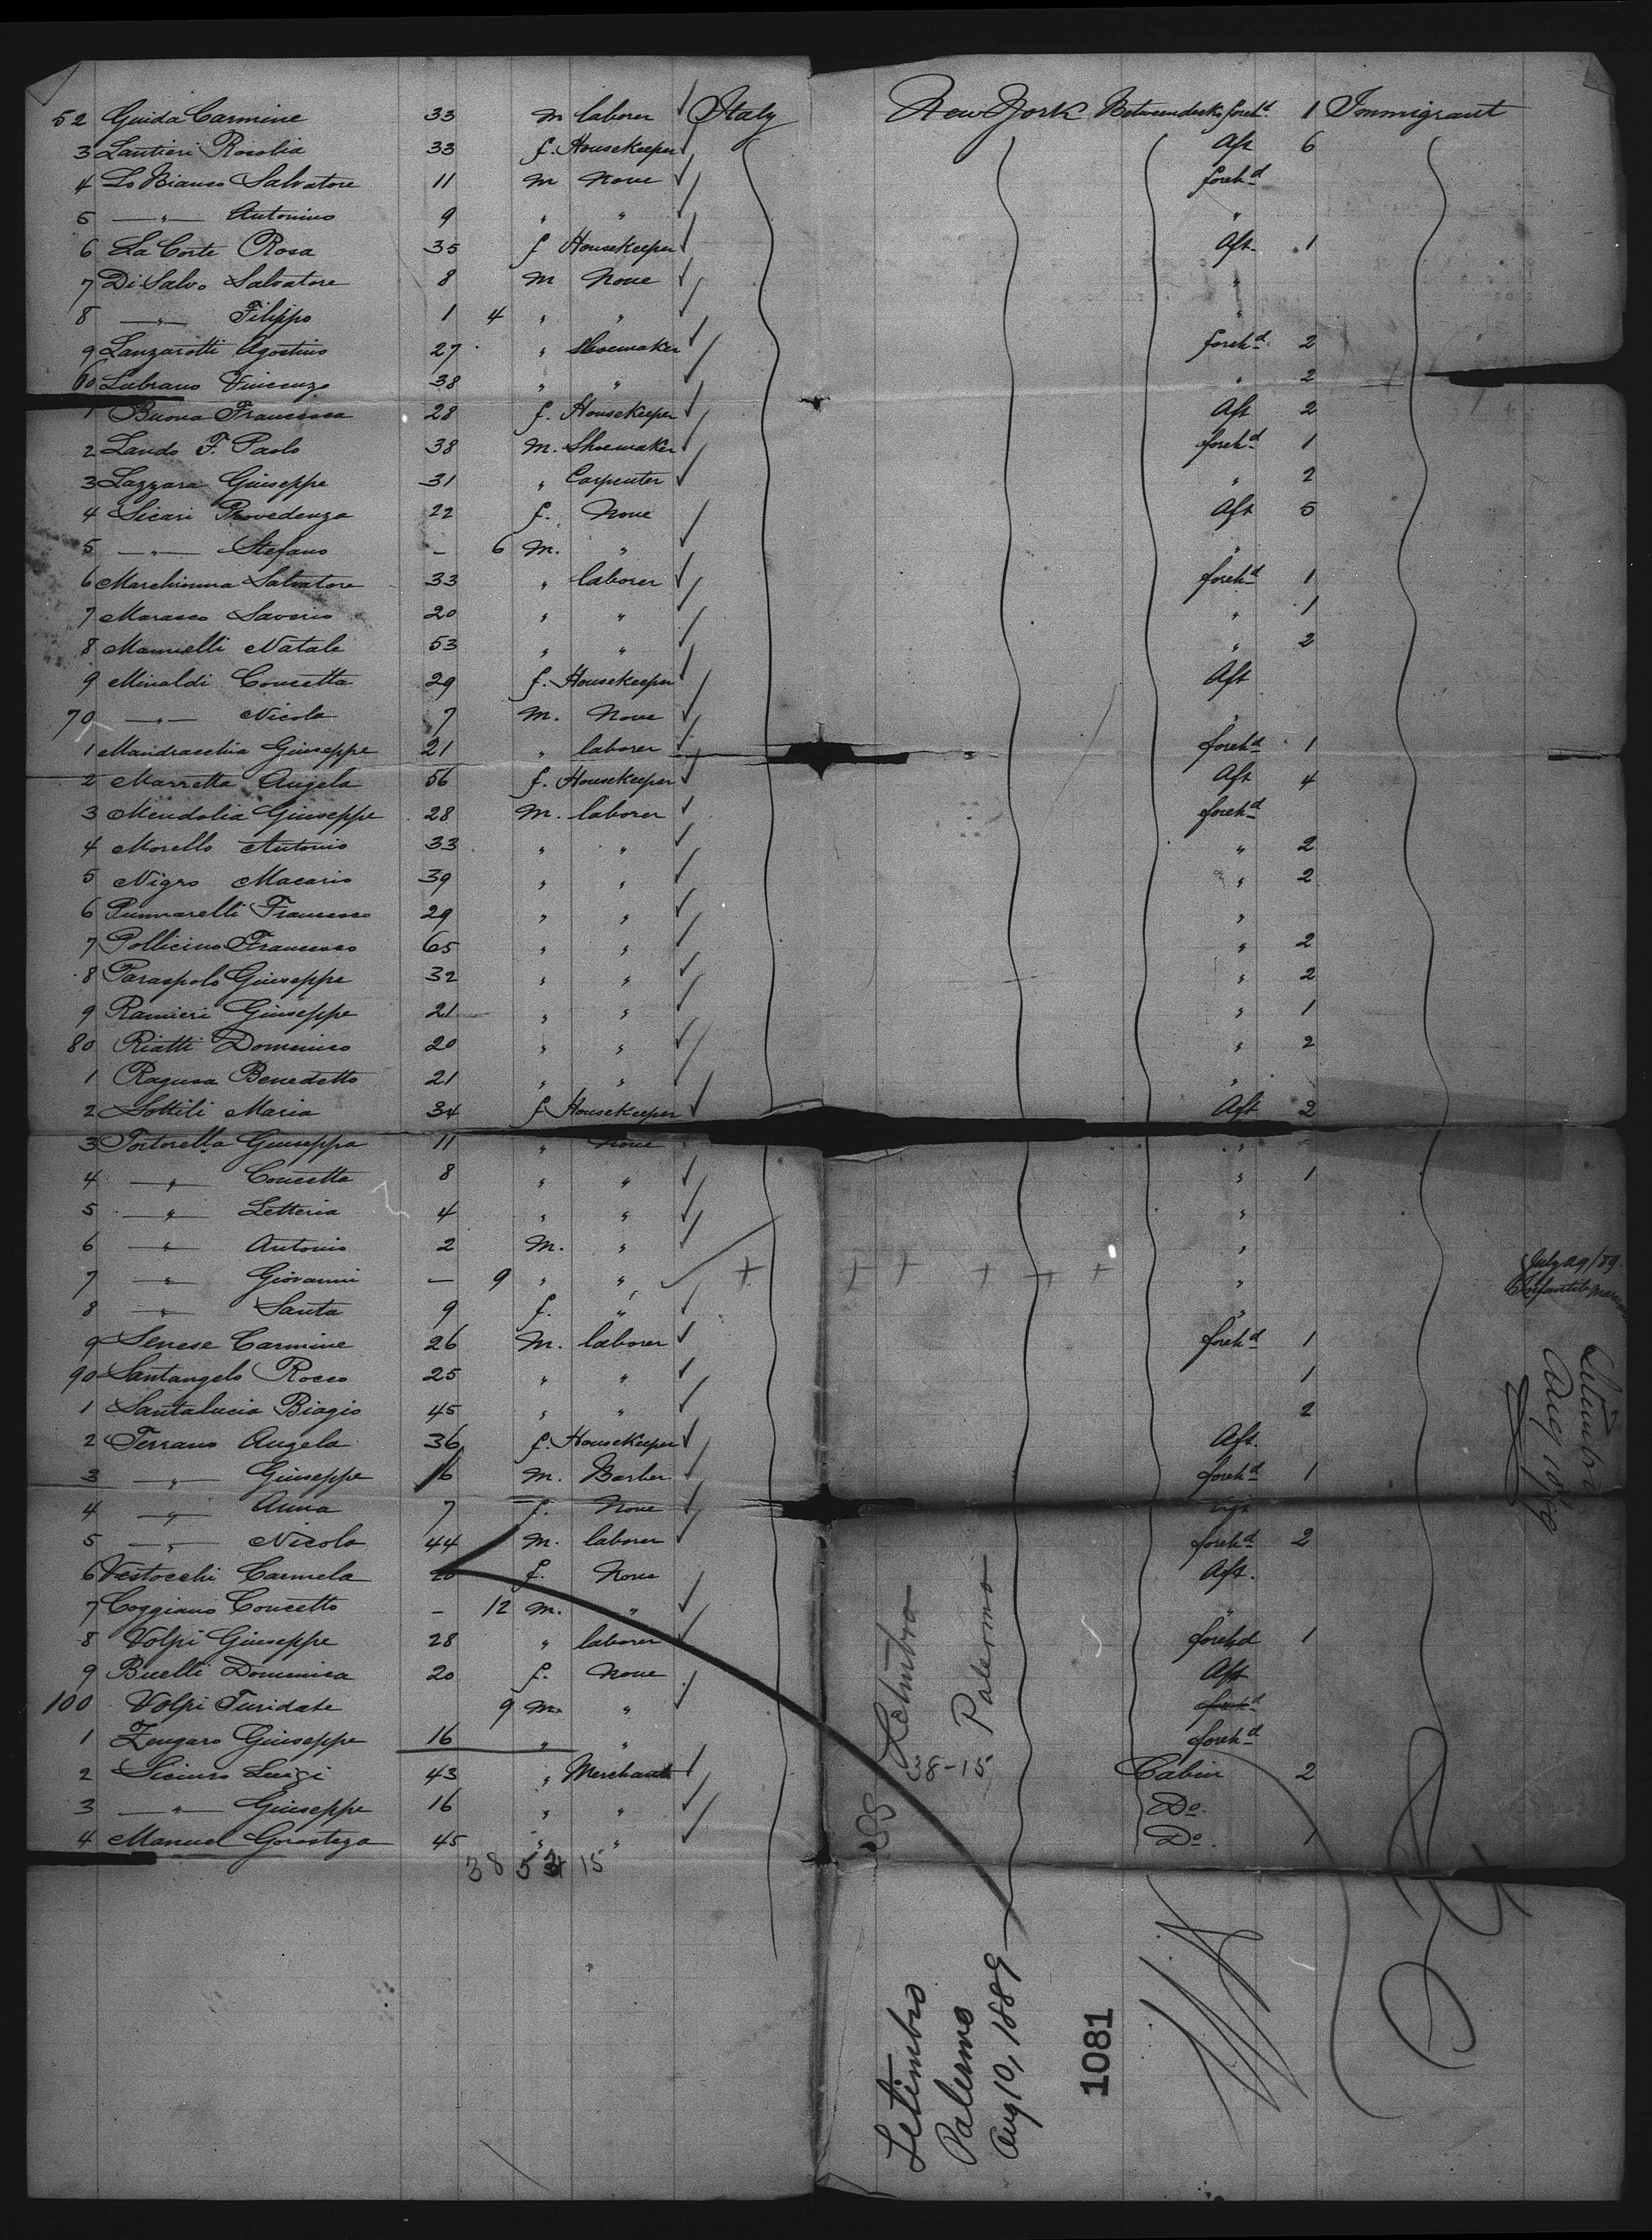 52 Guida Carmine 33 m laborer Italy New York Betweendecks foreh.d 1 Immigrant
3 Lantieri Rosolia 33 f. Housekeeper Aft 6
4 Lo Bianco Salvatore 11 m None foreh.d
5 —"— Antonino 9 " " "
6 La Corte Rosa 35 f Housekeeper Aft 1
7 Di Salvo Salvatore 8 m None "
8 —"— Filippo 1 4 " " "
9 Lanzarotti Agostino 27 " Shoemaker foreh.d 2
60 Lubrano Vincenzo 38 " " " 2
1 Buona Francesca 28 f. Housekeeper Aft 2
2 Lando F. Paolo 38 m. Shoemaker foreh.d 1
3 Lazzara Giuseppe 31 " Carpenter " 2
4 Sicari Provedenza 22 f. None Aft 5
5 —"— Stefano – 6 m. " "
6 Marchionna Salvatore 33 " laborer foreh.d 1
7 Marasco Saverio 20 " " " 1
8 Mannielli Natale 53 " " " 2
9 Minaldi Concetta 29 f. Housekeeper Aft
70 —"— Nicola 7 m. None "
1 Mandracchia Giuseppe 21 " laborer foreh.d 1
2 Marretta Angela 56 f. Housekeeper Aft 4
3 Mendolia Giuseppe 28 m. laborer foreh.d
4 Morello Antonio 33 " " " 2
5 Nigro Macario 39 " " " 2
6 Francesco 29 " " "
7 Pollicino Francesco 65 " " " 2
8 Paraspolo Giuseppe 32 " " " 2
9 Ranieri Giuseppe 21 " " " 1
80 Riatti Domenico 20 " " " 2
1 Ragusa Benedetto 21 " " "
2 Sottili Maria 34 f. Housekeeper Aft 2
3 Tortorella Giuseppa 11 " None "
4 —"— Concetta 8 " " " 1
5 —"— Letteria 4 " " "
6 —"— Antonio 2 m. " "
7 —"— Giovanni – 9 " " + + + + + + " July 29/89.
Infantile
8 —"— Santa 9 f. " "
9 Senese Carmine 26 m. laborer foreh.d 1
90 Santangelo Rocco 25 " " 1
1 Santalucia Biagio 45 " " 2
2 Terrano Angela 36 f. Housekeeper Aft.
3 —"— Giuseppe 16 m. Barber foreh.d 1
4 —"— Anna 7 f. None
5 —"— Nicola 44 m. laborer foreh.d 2
6 Vestocchi Carmela 20 f. None Aft.
7 Coggiano Concetto – 12 m. " "
8 Volpi Giuseppe 28 " laborer forehd 1
9 Bucelli Domenica 20 f. None Aft
100 Volpi Turidate 9 m. " foreh.d
1 Zengaro Giuseppe 16 " " foreh.d
2 Luigi 43 " Merchant Cabin 2
3 —"— Giuseppe 16 " " Do.
4 Manuel Gorostega 45 " " Do. 1
38 53 15
Letimbro
Aug 10/89
Letimbro
Palermo
38-15
Letimbro
Palermo
Aug 10, 1889
1081